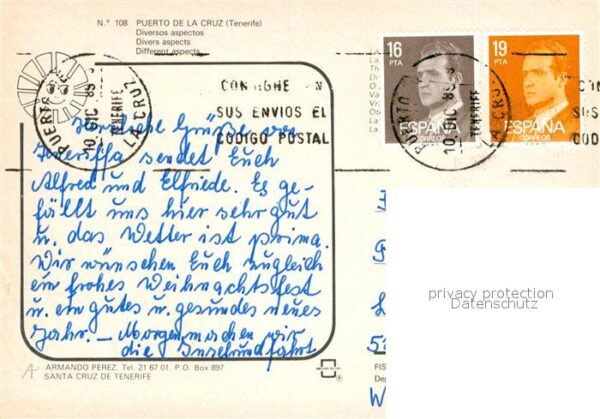 N.° 108 PUERTO DE LA CRUZ (Tenerife)
Diversos aspectos
Divers aspects
Different aspects
16
PTA
ESPAÑA
CORREOS
19
PTA
ESPAÑA
CORREOS
PUERTO
10 DIC 89
TENERIFE
LA CRUZ
CONSIGNE EN
SUS ENVIOS EL
CODIGO POSTAL
PUERTO
10 DIC 89
TENERIFE
LA CRUZ
CON
SUS
COD
Herzliche Grüße von
Teneriffa sendet Euch
Alfred und Elfriede. Es ge-
fällt uns hier sehr gut
u. das Wetter ist prima.
Wir wünschen Euch zugleich
ein frohes Weihnachtsfest
u. ein gutes u. gesundes neues
Jahr. – Morgen machen wir
die Inselrundfahrt
privacy protection
Datenschutz
ARMANDO PEREZ. Tel. 21 67 01. P.O. Box 897
SANTA CRUZ DE TENERIFE
FIS
Dep
W